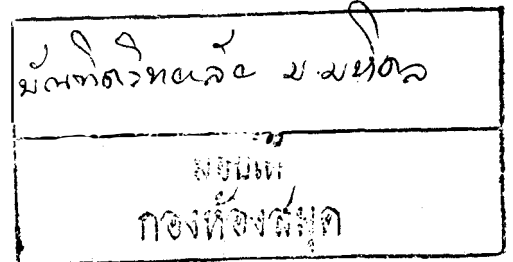 บัณฑิตวิทยาลัย ม.มหิดล
มอบให้
กองห้องสมุด